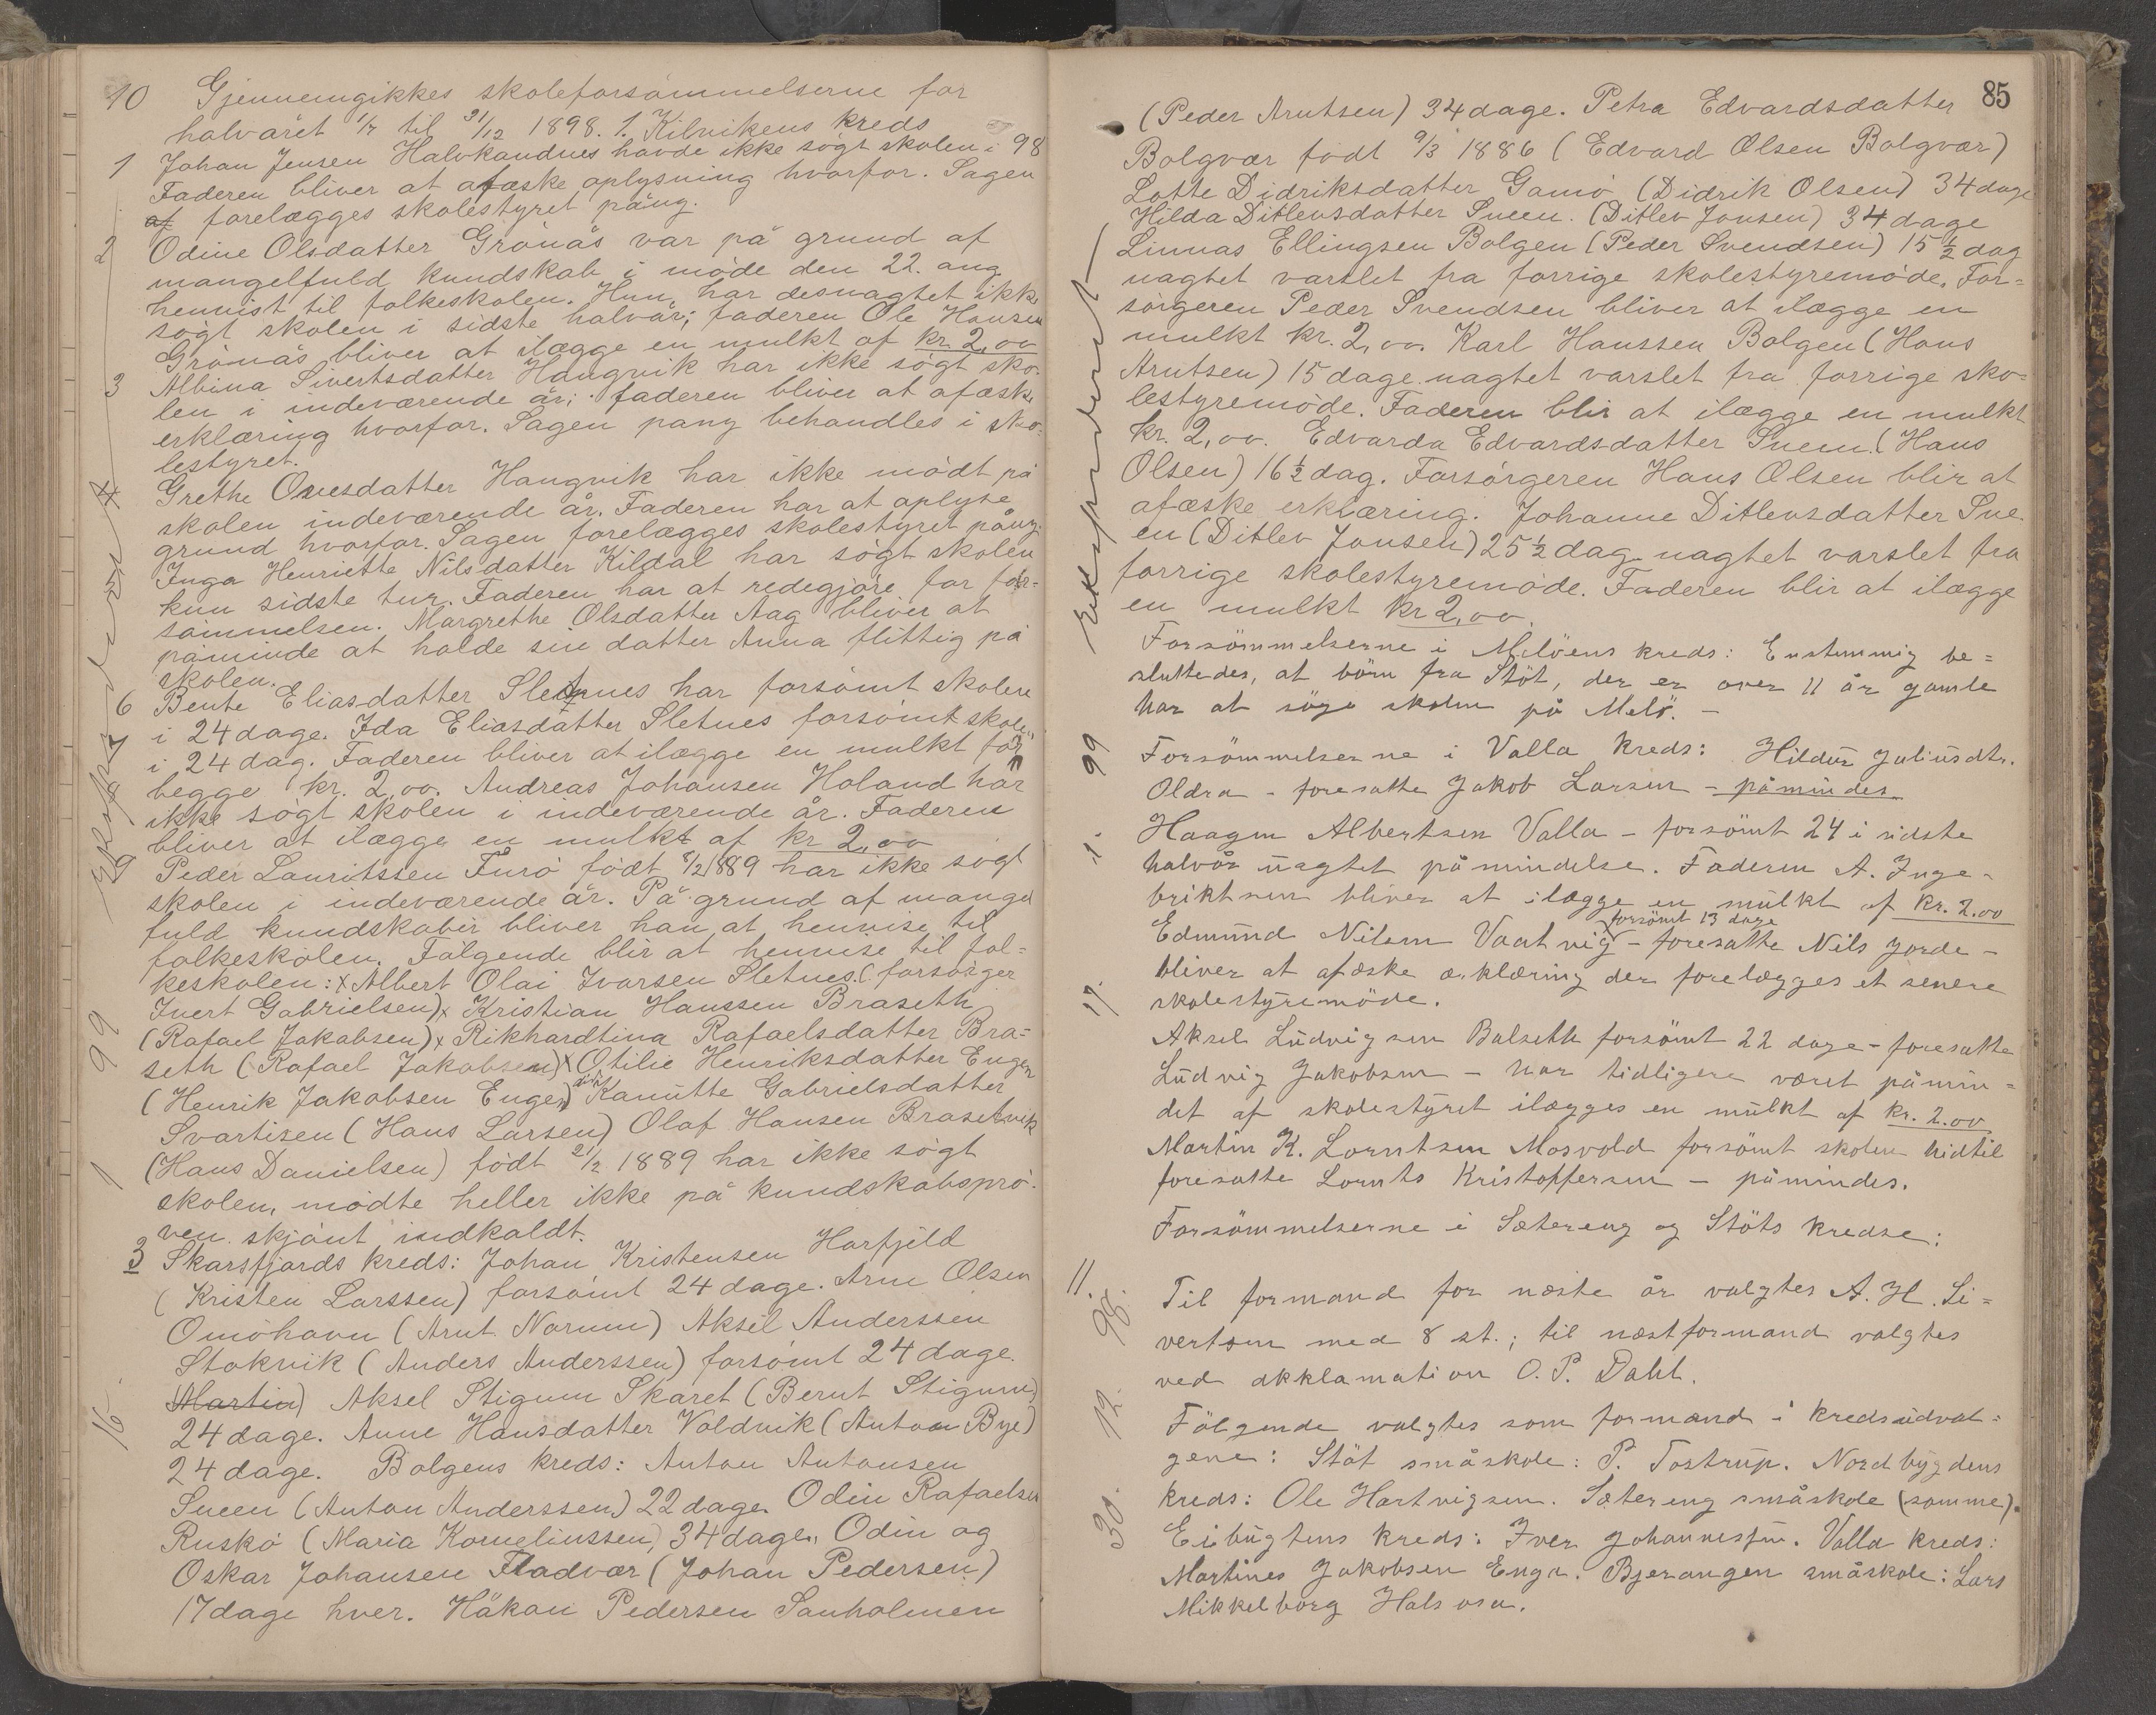 10 Gjennemgikkes skoleforsömmelserne for
halvåret 1/7 til 31/12 1898. 1. Kilvikens kreds
1 Johan Jensen Halvkandnes havde ikke sögt skolen i 98
Faderen bliver at afæske oplysning hvorfor. Sagen
af forelægges skolestyret påny.
2 Odine Olsdatter Grönås var på grund af
mangelfuld kundskab i möde den 22. aug.
henvist til folkeskolen. Hun har desuagtet ikke
sögt skolen i sidste halvår; faderen Ole Hansen
Grönås bliver at ilægge en mulkt af kr. 2,00
3 Albina Sivertsdatter Haugvik har ikke sögt sko-
len i indeværende år; faderen bliver at afæske
erklæring hvorfor. Sagen pany behandles i sko-
lestyret.
4 Grethe Onesdatter Haugvik har ikke mödt på
skolen indeværende år. Faderen har at oplyse
grund hvorfor. Sagen forelægges skolestyret påny.
Inga Henriette Nilsdatter Kildal har sögt skolen
kun sidste tur. Faderen har at redegjöre for for-
sömmelsen. Margrethe Olsdatter Aag bliver at
påminde at holde sin datter Anna flittig på
skolen.
6 Bente Eliasdatter Sletnes har forsömt skolen
i 24 dage. Ida Eliasdatter Sletnes forsömt skolen
i 24 dag. Faderen bliver at ilægge en mulkt for
begge kr. 2,00. Andreas Johansen Holand har
ikke sögt skolen i indeværende år. Faderen
bliver at ilægge en mulkt af kr 2,00
9 Peder Lauritssen Furö födt 8/2 1889 har ikke sögt
skolen i indeværende år. På grund af mangel
fuld kundskaber bliver han at henvise til
folkeskolen. Fölgende blir at henvise til fol-
keskolen: x Albert Olai Ivarsen Sletnes. (forsörger
Ivert Gabrielsen) x Kristian Hanssen Braseth
(Rafael Jakobsen) x Rikhardtina Rafaelsdatter Bra-
seth (Rafael Jakobsen) x Otilie Henriksdatter Engen
(Henrik Jakobsen Engen) Kanutte Gabrielsdatter
Svartisen (Hans Larsen) Olaf Hansen Brasetvik
(Hans Danielsen) födt 21/2 1889 har ikke sögt
skolen, mödte heller ikke på kundskabsprö-
ven skjönt indkaldt.
3 Skarsfjords kreds: Johan Kristensen Harfjeld
(Kristen Larssen) forsömt 24 dage. Arne Olsen
Omöhavn (Arnt Norum) Aksel Anderssen
Stokvik (Anders Anderssen) forsömt 24 dage.
Martin) Aksel Stigum Skaret (Bernt Stigum)
24 dage. Anne Hansdatter Voldvik (Anton Bye)
24 dage. Bolgens kreds: Anton Antonsen
Sneen (Anton Anderssen) 22 dage. Odin Rafaelsen
Ruskö (Maria Korneliussen) 34 dage. Odin og
Oskar Johansen Fladvær (Johan Pedersen)
17 dage hver. Håkon Pedersen Sauholmen
99
1
16.
85
(Peder Arntsen) 34 dage. Petra Edvardsdatter
Bolgvær födt 9/3 1886 (Edvard Olsen Bolgvær)
Lotte Didriksdatter Gamö (Didrik Olsen) 34 dage
Hilda Ditlevsdatter Sneen. (Ditlev Jonsen) 34 dage
Linnas Ellingsen Bolgen (Peder Svendsen) 15 ½ dag
uagtet varslet fra forrige skolestyremöde. For-
sörgeren Peder Svendsen bliver at ilægge en
mulkt kr. 2,00. Karl Hanssen Bolgen (Hans
Arntsen) 15 dage uagtet varslet fra forrige sko-
lestyremöde. Faderen blir at ilægge en mulkt
kr. 2,00. Edvarda Edvardsdatter Sneen. (Hans
Olsen) 16 ½ dag. Forsörgeren Hans Olsen blir at
afæske erklæring. Johanne Ditlevsdatter Sne-
en (Ditlev Jonsen) 25 ½ dag uagtet varslet fra
forrige skolestyremöde. Faderen blir at ilægge
en mulkt kr 2,00.
Forsömmelserne i Melöens kreds: Enstemmig be-
sluttedes, at börn fra Stöt, der er over 11 år gamle
har at söge skolen på Melö. -
99 Forsömmelserne i Valla kreds: Hildur Juliusdtr.
Oldra - foresatte Jakob Larsen - påmindes
1. Haagen Albertsen Valla - forsömt 24 i sidste
halvår uagtet påmindelse. Faderen A. Inge-
briktsen bliver at ilægge en mulkt af kr. 2.00
forsömt 13 dage
Edmund Nilsen Vaatvig - foresatte Nils Jorde -
bliver at afæske erklæring der forelægges et senere
17. skolestyremöde.
Aksel Ludvigsen Balseth forsömt 22 dage - foresatte
Ludvig Jakobsen - har tidligere været påmin-
det af skolestyret ilægges en mulkt af kr. 2.00
Martin K. Lorntsen Mosvold forsömt skolen hidtil
foresatte Lornts Kristoffersen - påmindes.
Forsömmelserne i Sætereng og Stöts kredse:
11. Til formand for næste år valgtes A. H. Si-
98. vertsen med 8 st.; til næstformand valgtes
ved akklamation O. P. Dahl.
12. Fölgende valgtes som formænd i kredsudval-
gene: Stöt småskole: P. Tostrup. Nordbygdens
30. kreds: Ole Hartvigsen. Sætereng småskole (samme).
Eibugtens kreds: Iver Johannessen. Valla kreds:
Martines Jakobsen Enga. Bjerangen småskole: Lars
Mikkelborg Halsosa.